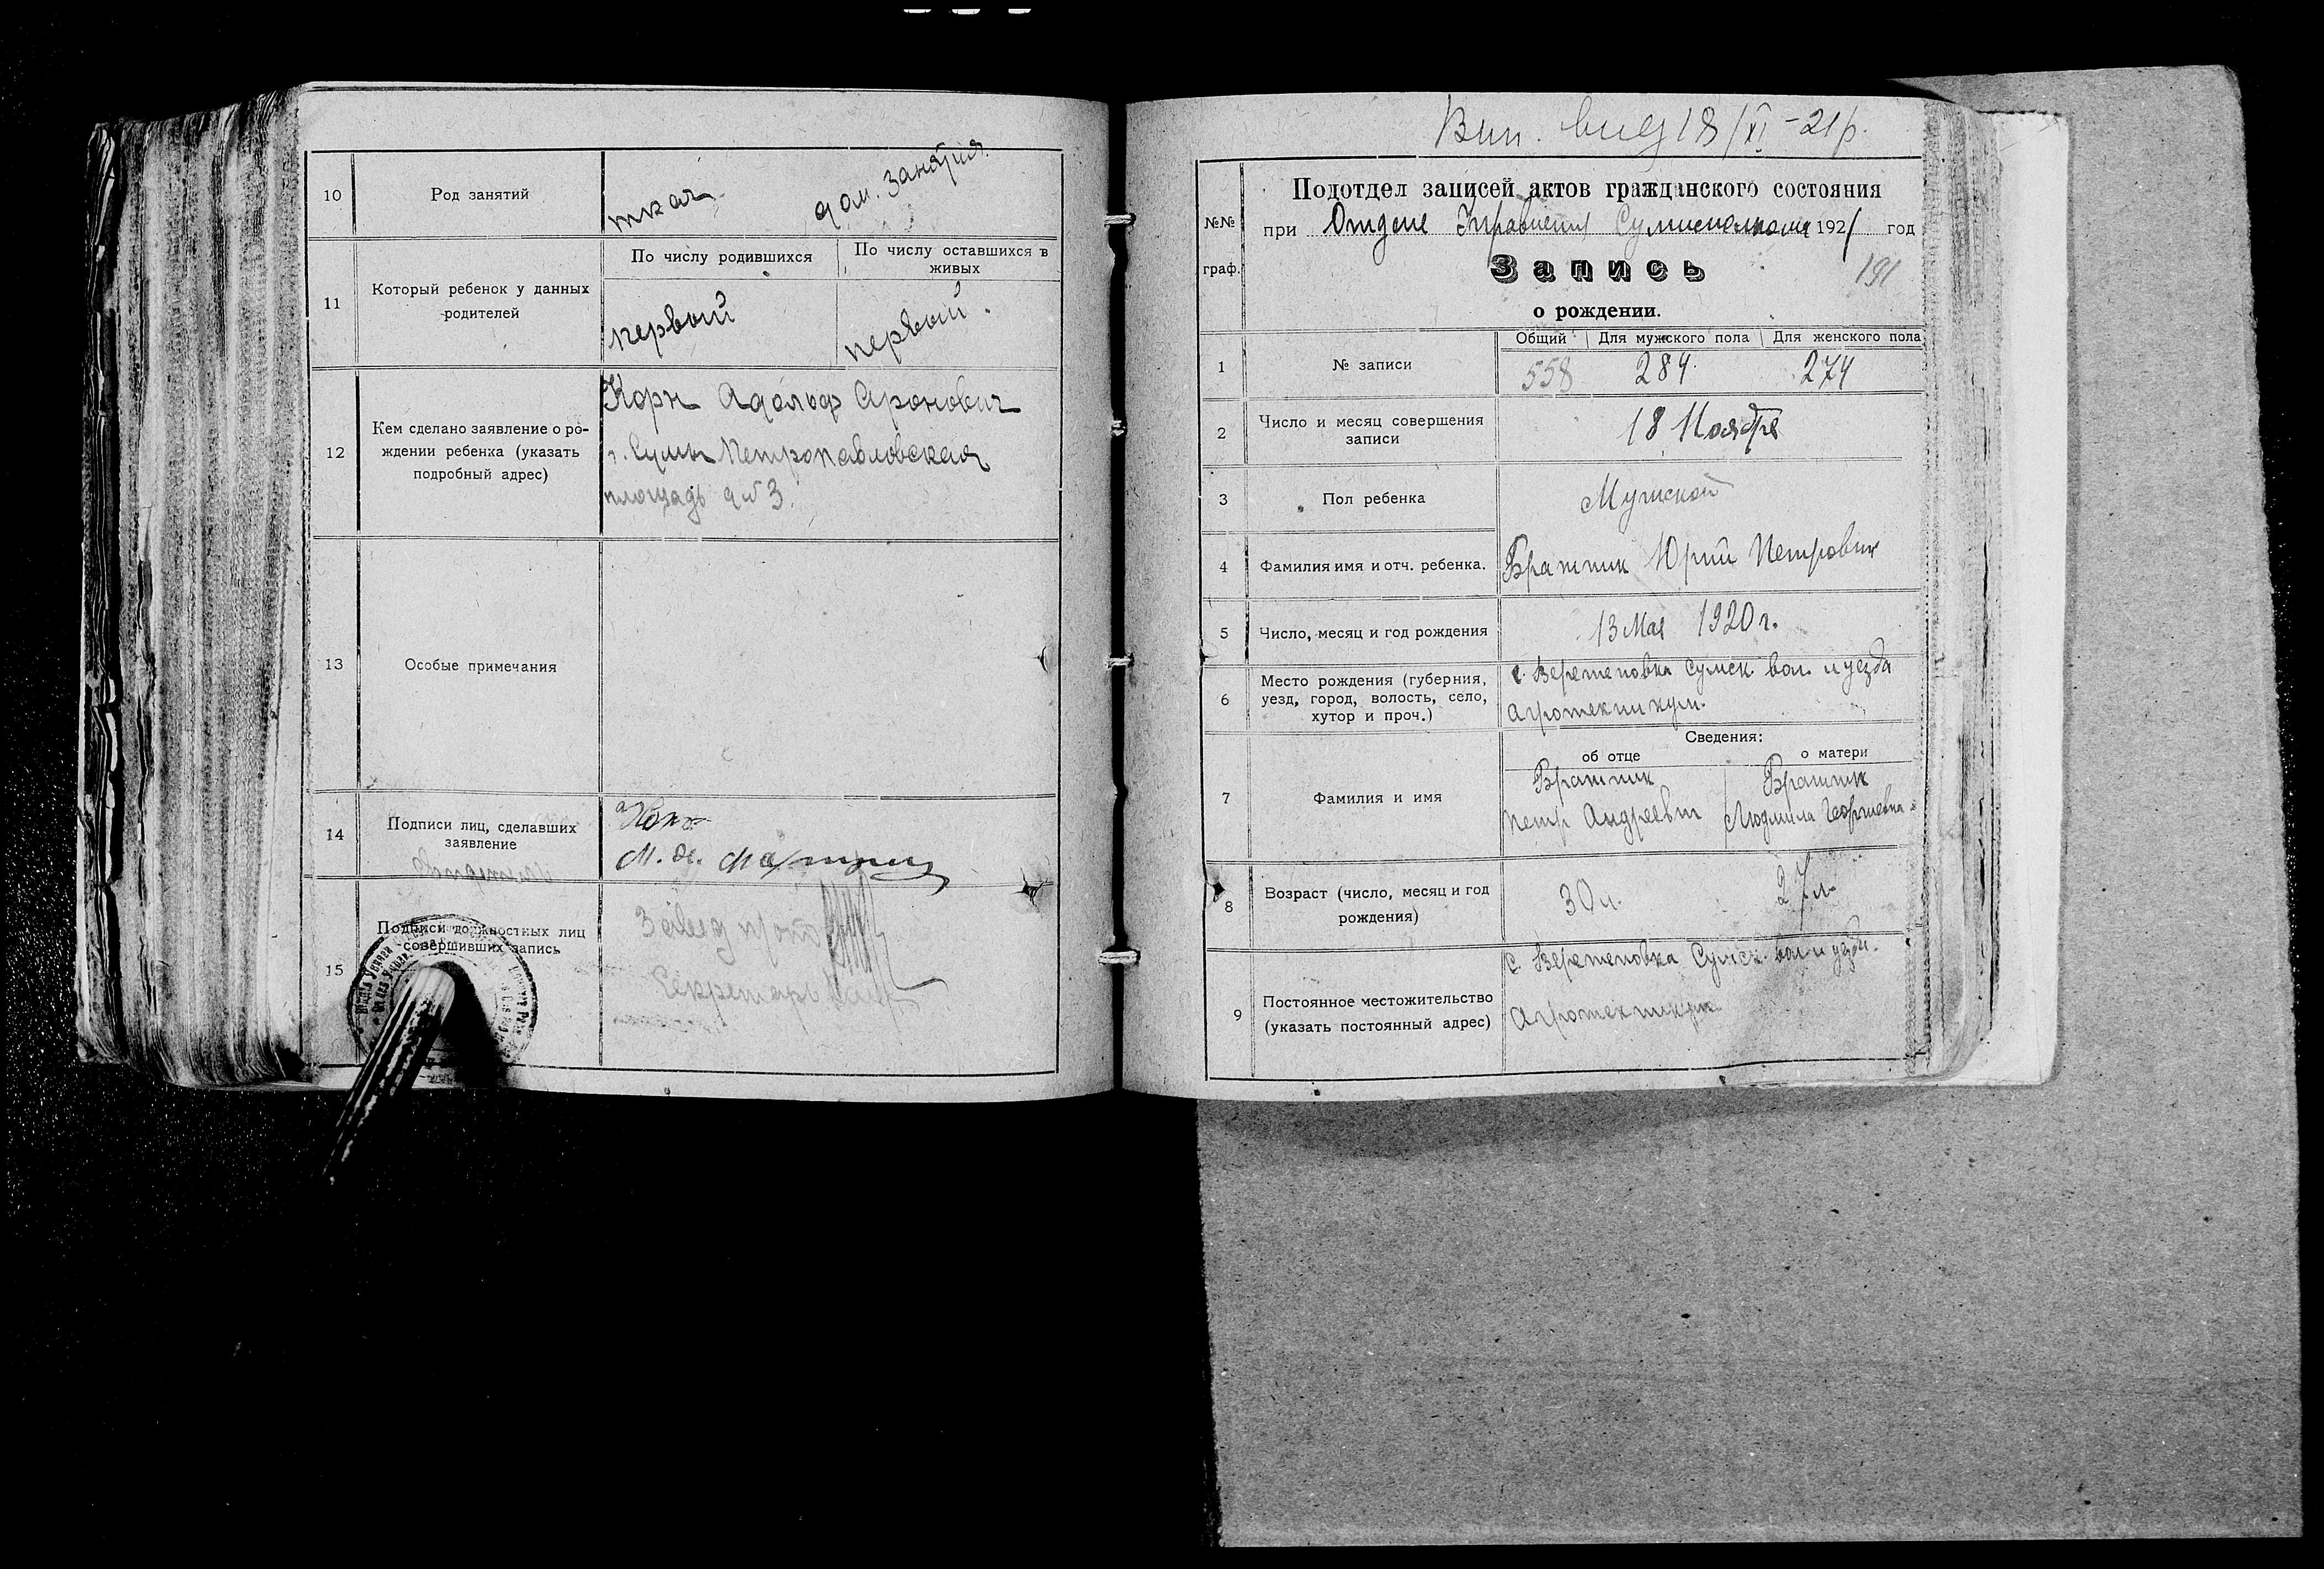 10
Род занятий
ткач.
дом. занятия.
11
Который ребенок у данных
родителей
По числу родившихся
По числу оставшихся в
живых
первый
первый.
12
Кем сделано заявление о ро-
ждении ребенка (указать
подробный адрес)
Корн Адольф Аронович
г. Сумы Петропавловская
площадь д № 3.
13
Особые примечания
14
Подписи лиц, сделавших
заявление
15
Подписи должностных лиц
совершивших запись
Секретарь
18/XI-21р.
№№
граф.
Подотдел записей актов гражданского состояния
при Отделе Управления Сумисполкома 1921 год
Запись
191
о рождении.
1
№ записи
Общий
Для мужского пола
Для женского пола
558
284.
274
2
Число и месяц совершения
записи
18 Ноября
3
Пол ребенка
Мужской
4
Фамилия имя и отч. ребенка.
Юрий Петрович
5
Число, месяц и год рождения
13 Мая 1920 г.
6
Место рождения (губерния,
уезд, город, волость, село,
хутор и проч.)
с. Веретеновка Сумск. вол. и уезда
Агротехникум.
Сведения:
об отце
о матери
7
Фамилия и имя
Петр Андреевич
Людмила Георгиевна
8
Возраст (число, месяц и год
рождения)
30 л.
27 л.
9
Постоянное местожительство
(указать постоянный адрес)
с. Веретеновка Сумск. вол и уезда.
Агротехникум